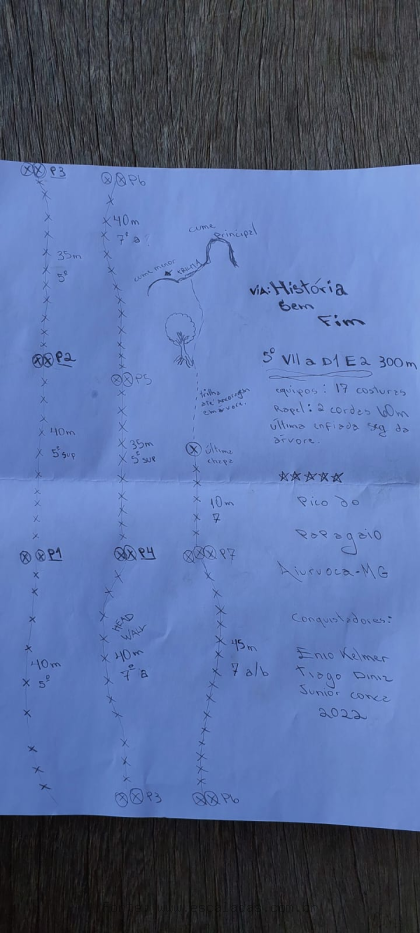 P3
35m
5º
P2
40m
5º sup
P1
40m
5º
P6
40m
7º a
P5
35m
5º sup
P4
HEAD
WALL
40m
P3
cume
principal
cume menor
última
chapa
10m
7
P7
45m
7 a/b
P6
VIA: História
Sem
Fim
5º VII a D1 E2 300m
equipos: 17 costuras
Rapel: 2 cordas 60m
última enfiada seg da
árvore.
Pico do
Papagaio
Aiuruoca-MG
Conquistadores:
Enio Kelmer
Tiago Diniz
Junior
2022